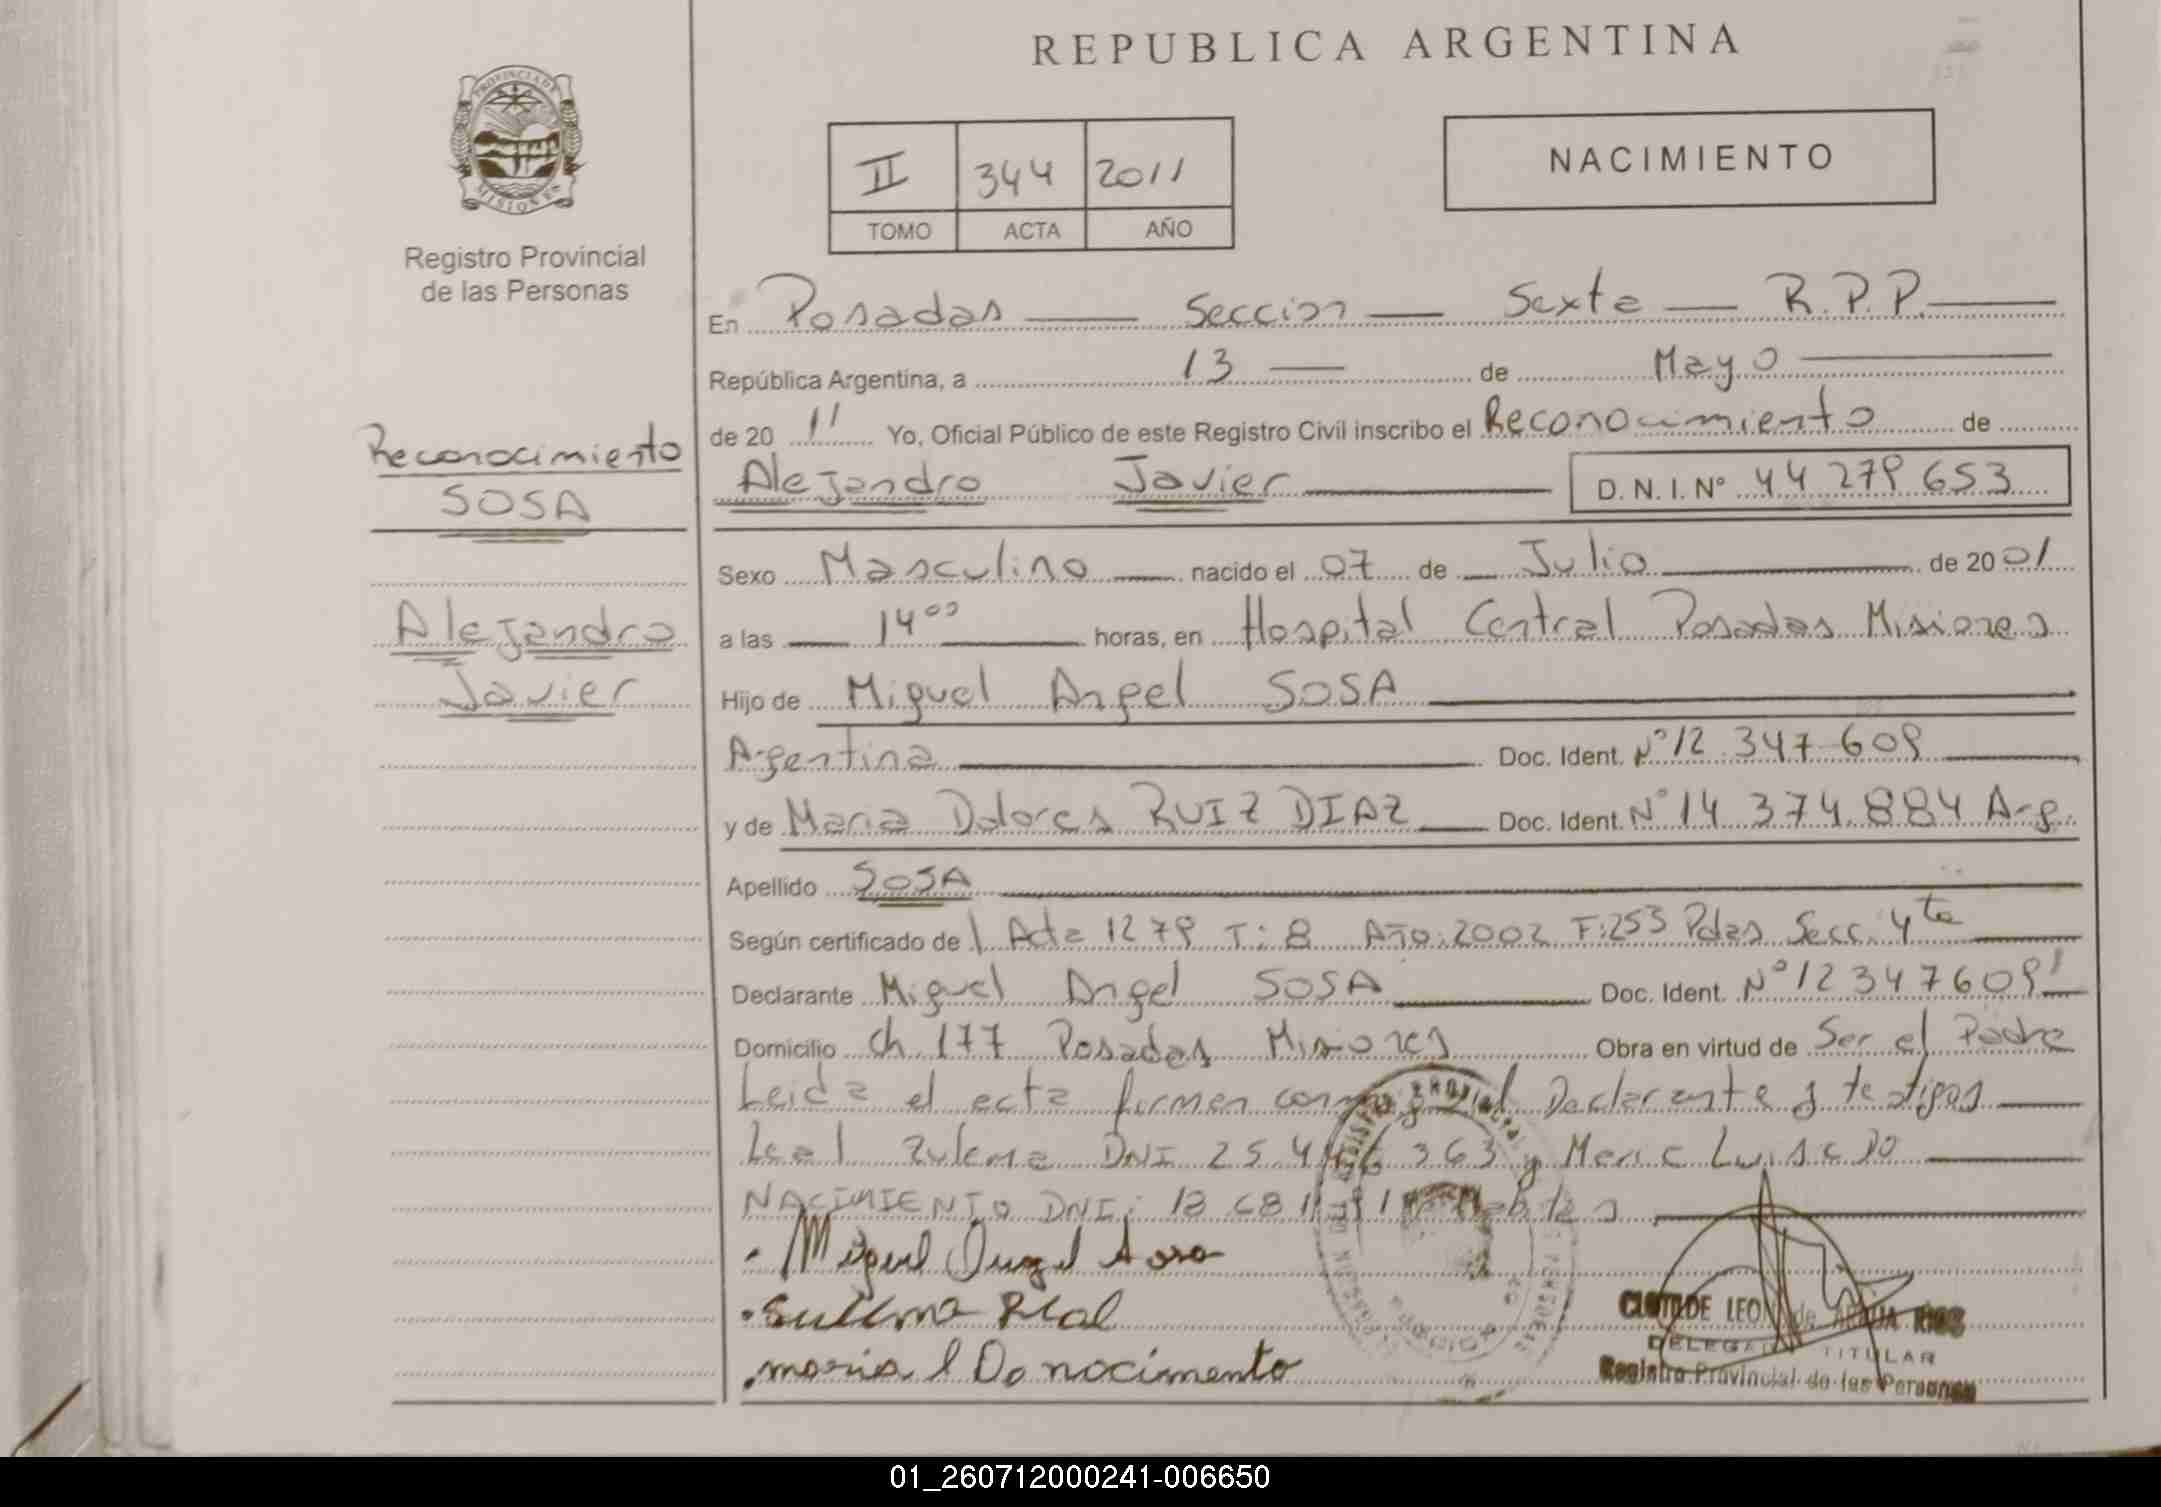 REPUBLICA ARGENTINA
PROVINCIA DE MISIONES
Registro Provincial
de las Personas
II 344 2011
TOMO ACTA AÑO
NACIMIENTO
En Posadas — Seccion — Sexta — R.P.P.
República Argentina, a 13 — de Mayo
de 20 11 Yo, Oficial Público de este Registro Civil inscribo el Reconocimiento de
Alejandro Javier D.N.I. Nº 44 279 653
Reconocimiento
SOSA
Alejandro
Javier
Sexo Masculino nacido el 07 de Julio de 2001
a las 14 00 horas, en Hospital Central Posadas Misiones
Hijo de Miguel Angel SOSA
Argentina Doc. Ident. Nº 12.347.609
y de Maria Dolores RUIZ DIAZ Doc. Ident. Nº 14.374.884 Arg.
Apellido SOSA
Según certificado de Acta 1279 T: 8 Año: 2002 F: 253 Pdas Secc. 4ta
Declarante Miguel Angel SOSA Doc. Ident. Nº 12347609
Domicilio Ch. 177 Posadas Misiones Obra en virtud de Ser el Padre
Leida el acta firman conmigo el Declarante y testigos
Leal Zulema DNI 25.446.363 y Maria Luisa DO
NACIMIENTO DNI: 18 681 Habiles
Miguel Angel Sosa
Sulema Real
maria l Do nocimento
CLOTILDE LEON de ARAUJA RIOS
DELEGADA TITULAR
Registro Provincial de las Personas
01_260712000241-006650